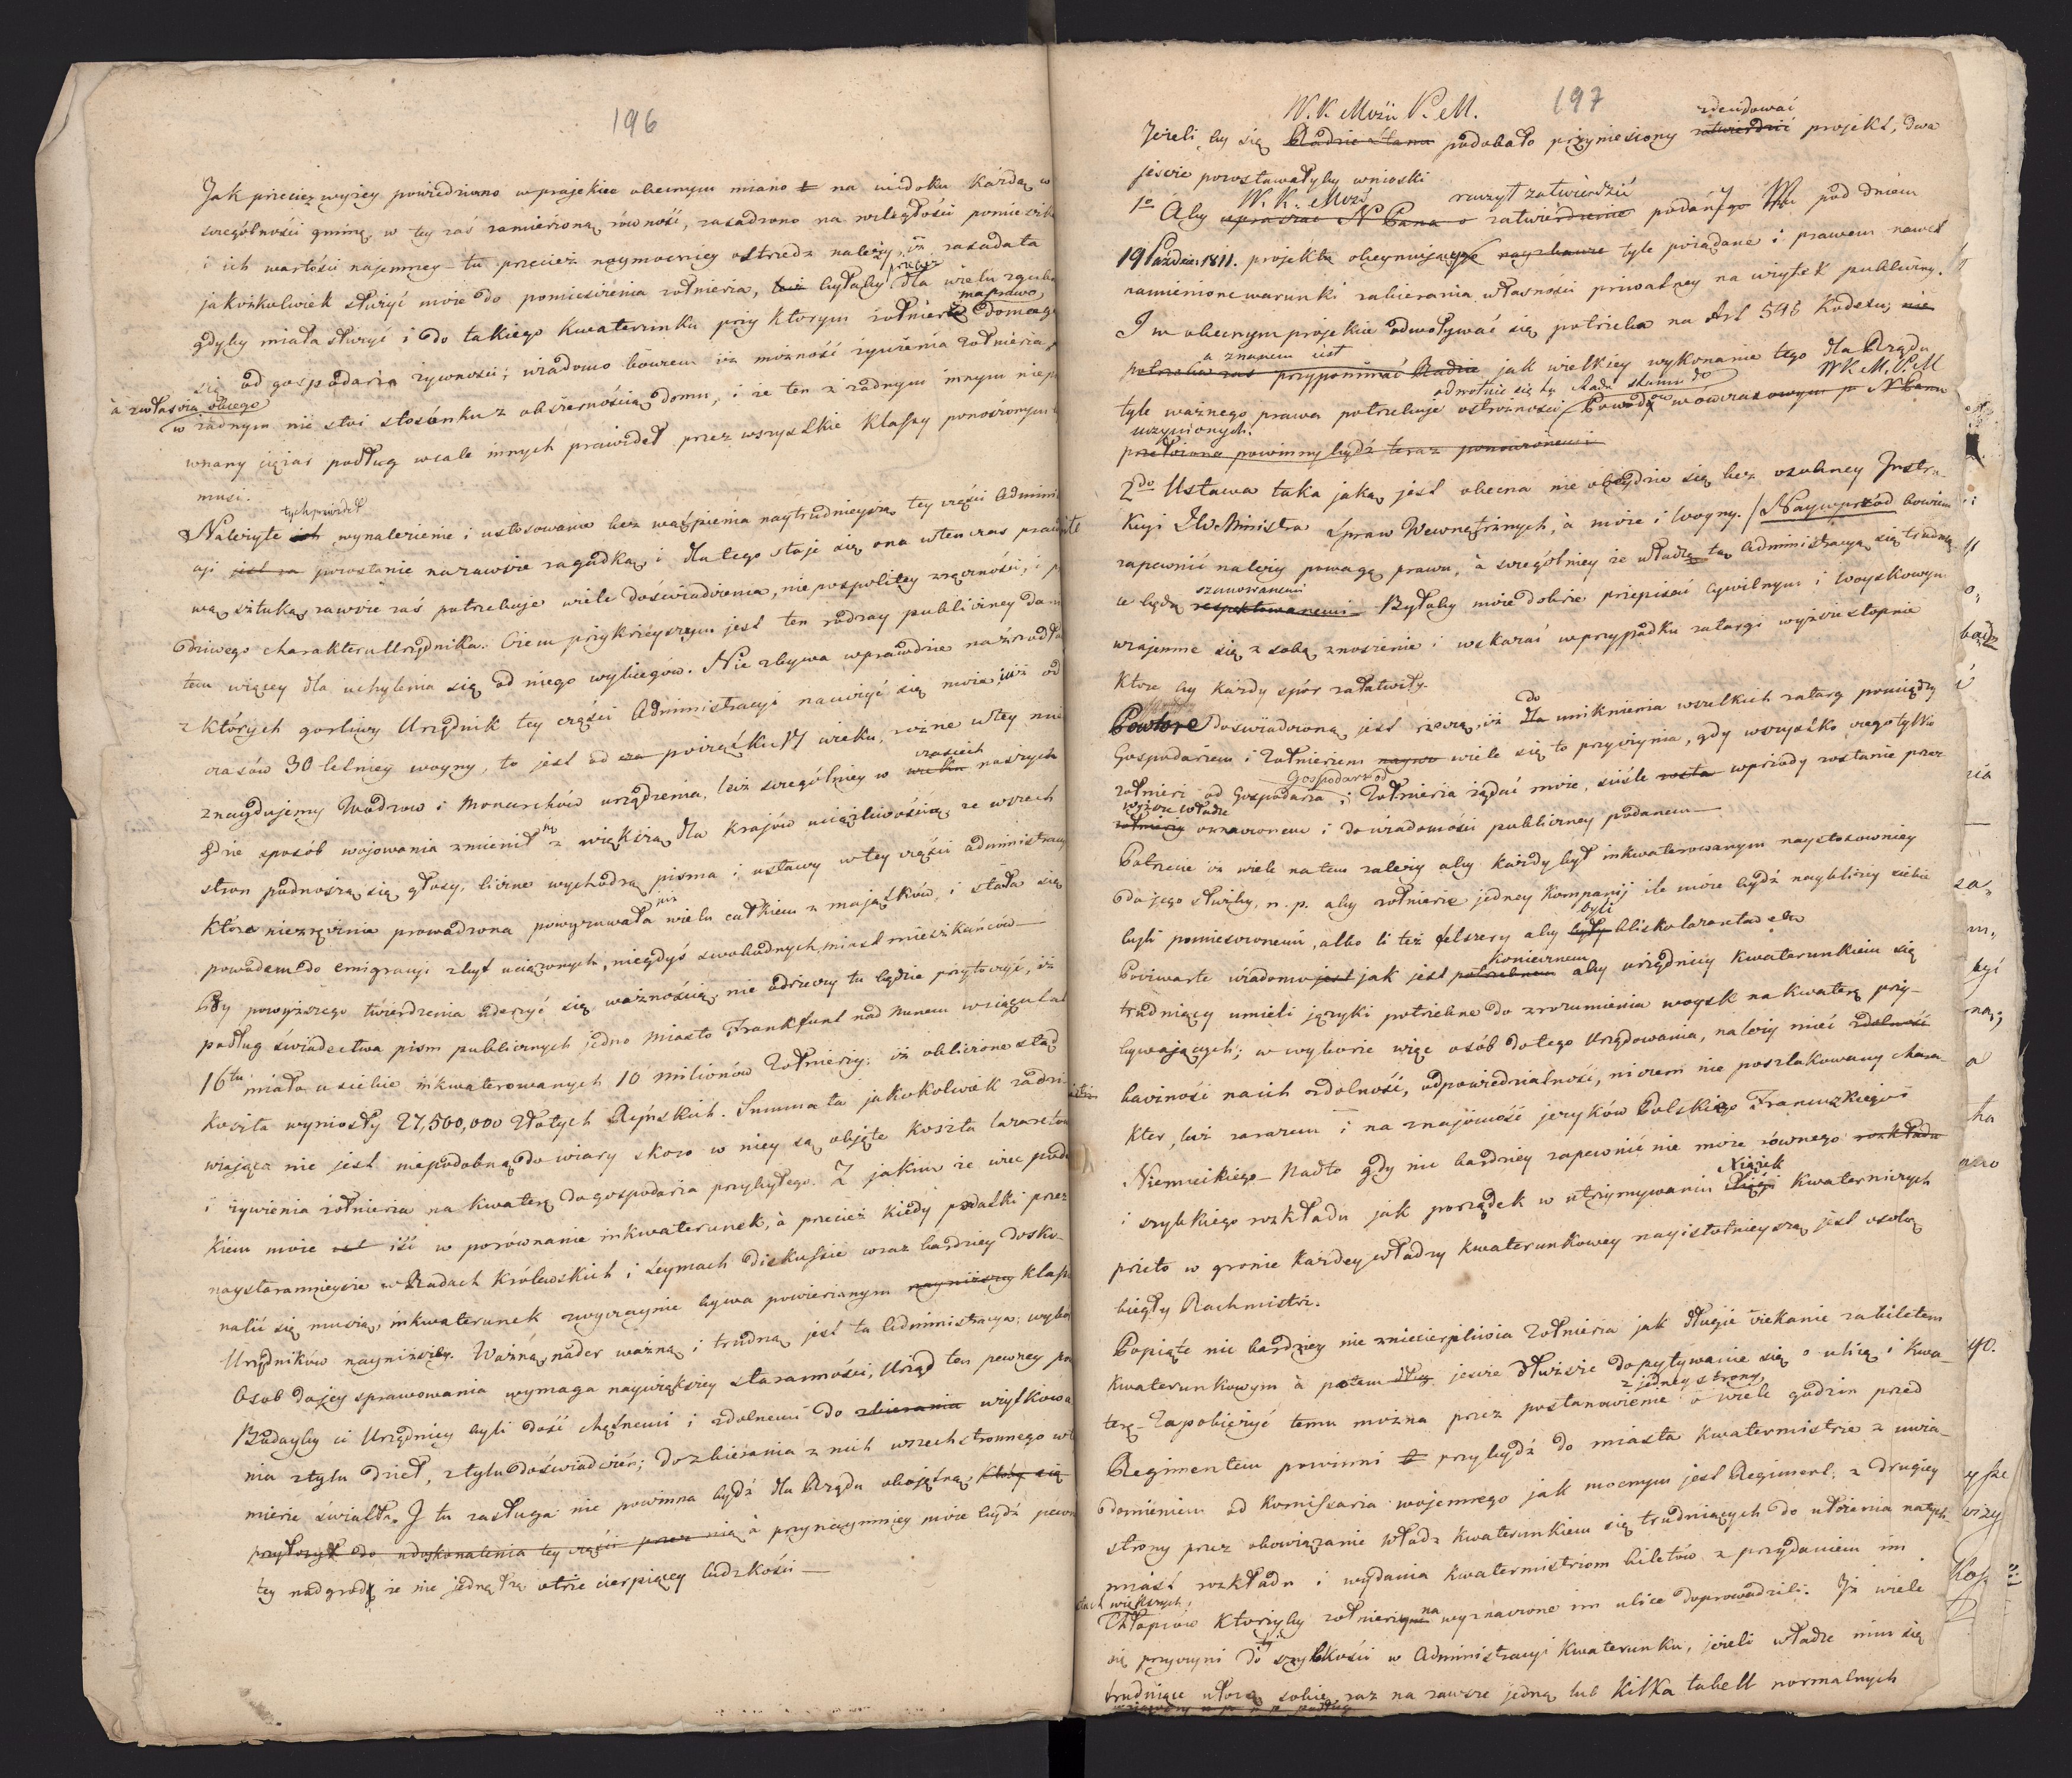 196
Jak przeciez wyżey powiedziano w projekcie obecnym miano na widoku każdą w
szczególności gminę, w tey zaś zamierzoną równość, zasadzono na rozległości pomieszk
i ich wartości najemney – tu przecież naymocniey ostrzedz należy, iż zasada ta
jakożkolwiek służyć może do pomieszczenia żołnierza, byłaby przecież dla wielu zgubą
gdyby miała służyć i do takiego kwaterunku przy którym żołnierz ma prawo domag
się od gospodarza żywności; wiadomo bowiem iż możność żywienia żołnierza,
a zwłaszcza obcego
w żadnym nie stoi stosunku z obszernością domu, i że ten z żadnym innym niepo
wnany ciężar podług wcale innych prawideł przez wszystkie klassy ponoszonym
musi.
tych prawideł
Należyte ich wynalezienie i ustosowanie bez wątpienia naytrudnieyszą tey części Admini
cyi jest za pozostanie nazawsze zagadką, i dla tego staje się ona wtenczas praw
wą sztuką, zawsze zaś potrzebuje wiele doświadczenia, niepospolitey zręczności, i p
dziwego charakteru Urzędnika. Czem przykrzeyszym jest ten rodzay publiczney dani
tem więcey dla uchylenia się od niego wybiegów. Nie zbywa wprawdzie na źrzodła
z których gorliwy Urzędnik tey części Administracyi nauczyć się może, iż od
czasów 30 letniey woyny, to jest od za początku 17 wieku, rożne w tey mi
znaydujemy Wodzow i Monarchów urządzenia, lecz szczególniey w wieku czasiech naszych
gdzie sposób wojowania zmienił się z większą dla krajów uciążliwością, ze wszech
stron podnoszą się głosy, liczne wychodzą pisma i ustawy w tey części administracy
która niezręcznie prowadzona powyzuwała już wielu całkiem z majątków, i stała się
powodem do emigracyi zbyt uciążonych, niegdyś swobodnych miast mieszkańców –
By powyższego twierdzenia uderzyć się ważnością, nie odrzeczy tu będzie przytoczyć, iż
podług świadectwa pism publicznych jedno miasto Frankfurt nad Menem w ciągu lat
16tu miało u siebie inkwaterowanych 10 milionów Żołnierzy; iż obliczone stąd
koszta wyniosły 27,500,000 Złotych Reyńskich. Summa ta jakokolwiek zadzi
wiająca nie jest niepodobną do wiary skoro w niey są objęte koszta lazaretow
i żywienia żołnierza na kwaterę do gospodarza przybyłego. Z jakim że więc poda
kiem może iść w porównanie inkwaterunek, a przecież kiedy podatki przez
naystarannieysze w Radach Królewskich i Seymach diskussie coraz bardziey dosko-
nalić się muszą, inkwaterunek zwyczaynie bywa powierzanym nayniższey klass
Urzędników nayniższey. Ważną, nader ważną i trudną jest ta Administracya; wybór
Osob do jey sprawowania wymaga naywiększey staranności, Urząd ten pewney po
Bodayby ci Urzędnicy byli dość chętnemi i zdolnemi do zbierania użytkowa
nia z tylu dzieł, z tylu doświadczeń; do zbierania z nich wszechstronnego w
mierze światła. I tu zasługa nie powinna bydź dla Rządu obojętną, którą się
przyłożył do udoskonalenia tey części przez nią a przynaymniey może bydź pewn
tey nadgrody że nie jedną łzę otrze cierpiącey ludzkości –
197
W. K. Mości P. M. zdecydować
Jeżeli by się Radzie Stanu podobało przyniesiony zatwierdzić projekt, dwa
jeszcze pozostawałyby wnioski
W. K. Mość raczył zatwierdzić
1o Aby upraszać N Pana o zatwierdzenie podany Mu pod dniem
19 Paździer. 1811. projekta obeymujące tyle pożądane i prawem nawet
zamienione warunki zabierania własności prywatney na użytek publiczny.
I w obecnym projekcie odwoływać się potrzeba na Art 545 Kodexu; nie
a znanem iest
potrzeba zaś przypominać Radzie jak wielkiey wykonanie tego dla Rządu
odwołuie się tu Rada Stanu do W K. M. P. M
tyle ważnego prawa potrzebuje ostrożności powodów wówczasowym p. N Panu
uczynionych.
przełożone powinny bydź teraz ponowionemi
2do Ustawa taka jaką jest obecna nie obeydzie się bez osobney Instru-
kcyi JW Ministra Spraw Wewnętrznych, a może i Woyny. Naywprzód bowiem
zapewnić należy powagę prawu, a szczególniey że władze tą Administracyą się trudnią
szanowanemi
ce będą respektowanemi. Byłoby może dobrze przepisać Cywilnym i Woyskowym
wzajemne się z sobą znoszenie i wskazać w przypadku zatargi wyższe stopnie
które by każdy spór załatwiły.
Powtore doświadczoną jest rzeczą, iż dla do uniknienia wszelkich zatarg pomiędzy
Gospodarzem i Żołnierzem wiele się to przyczynia, gdy wszystko czego tylko
Gospodarz od
żołnierz od Gospodarza i Żołnierza żądać może, ściśle wprzody zostanie przez
wyższe władze
żołnierzy oznaczonem i do wiadomości publiczney podanem –
Potrzecie iż wiele na tem zależy aby każdy był inkwaterowanym naystosowniey
do jego służby, n. p. aby żołnierze jedney kompanij ile może bydź naybliżey siebie
byli pomieszczonemi, albo li też felszery aby byli blisko lazaretu etc
Poczwarte wiadomo jest jak jest potrzebnem koniecznem aby urzędnicy kwaterunkiem się
trudniący umieli języki potrzebne do zrozumienia woysk na kwaterę przy-
bywających; w wyborze więc osób do tego Urzędowania, należy mieć zdolność
baczność na ich zdolność, odpowiedzialność, niczem nie poszlakowany chara-
kter, lecz zarazem i na znajomość języków Polskiego Francuzkiego i
Niemieckiego – Nadto gdy nic bardziey zapewnić nie może równego rozkładu
i szybkiego rozkładu jak porządek w utrzymywaniu Xiążek kwaterniczych
przeto w gronie każdey władzy kwaterunkowey nayistotnieyszą jest osobą
biegły Rachmistrz.
Popiąte nic bardziey nie zniecierpliwia Żołnierza jak długie czekanie za biletem
kwaterunkowym a potem jeszcze dłuższe dopytywanie się o ulicę i kwa-
z jedney strony,
terę – Zapobieżyć temu można przez postanowienie o wiele godzin przed
Regimentem powinni przybydź do miasta kwatermistrze z uwia-
domieniem od Komissarza wojennego jak mocnym jest Regiment, z drugiey
strony przez obowiązanie władz kwaterunkiem się trudniących do ułożenia natych-
miast rozkładu i wydania kwatermistrzom biletów z przydaniem im
większych,
Chłopców którzyby żołnierzy na wyznaczone im ulice doprowadzili. Iż wiele
się przyczyni do tey szybkości w Administracyi kwaterunku, jeżeli władze nim się
trudniące ułożą sobie raz na zawsze jedną lub kilka tabell normalnych